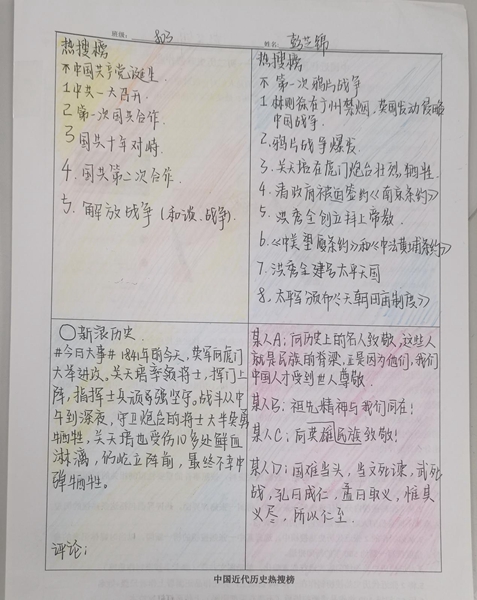 班级：803
姓名：彭芷锦
热搜榜
不 中国共产党诞生.
1 中共一大召开.
2 第一次国共合作.
3 国共十年对峙.
4. 国共第二次合作.
5. 解放战争(和谈.战争).
热搜榜
不 第一次鸦片战争
1 林则徐在广州禁烟,英国发动侵略
中国战争.
2. 鸦片战争爆发.
3. 关天培在虎门炮台壮烈牺牲.
4. 清政府被迫签约《南京条约》
5. 洪秀全创立拜上帝教.
6. 《中美望厦条约》和《中法黄埔条约》
7. 洪秀全建号太平天国
8. 太平军颁布《天朝田亩制度》
○新浪历史.
#今日大事# 1841年的今天,英军向虎门
大举进攻。关天培率领将士,挥门上
阵,指挥士兵顽强坚守。战斗从中
午到深夜,守卫炮台的将士大半英勇
牺牲,关天培也受伤10多处鲜血
淋漓,仍屹立阵前,最终不幸中
弹牺牲。
评论:
某人A:向历史上的名人致敬,这些人
就是民族的脊梁,正是因为他们,我们
中国人才受到世人尊敬.
某人B:祖先精神与我们同在!
某人C:向英雄民族致敬!
某人D:国难当头,当文死谏,武死
战,孔曰成仁,孟曰取义,惟其
义尽,所以仁至.
中国近代历史热搜榜